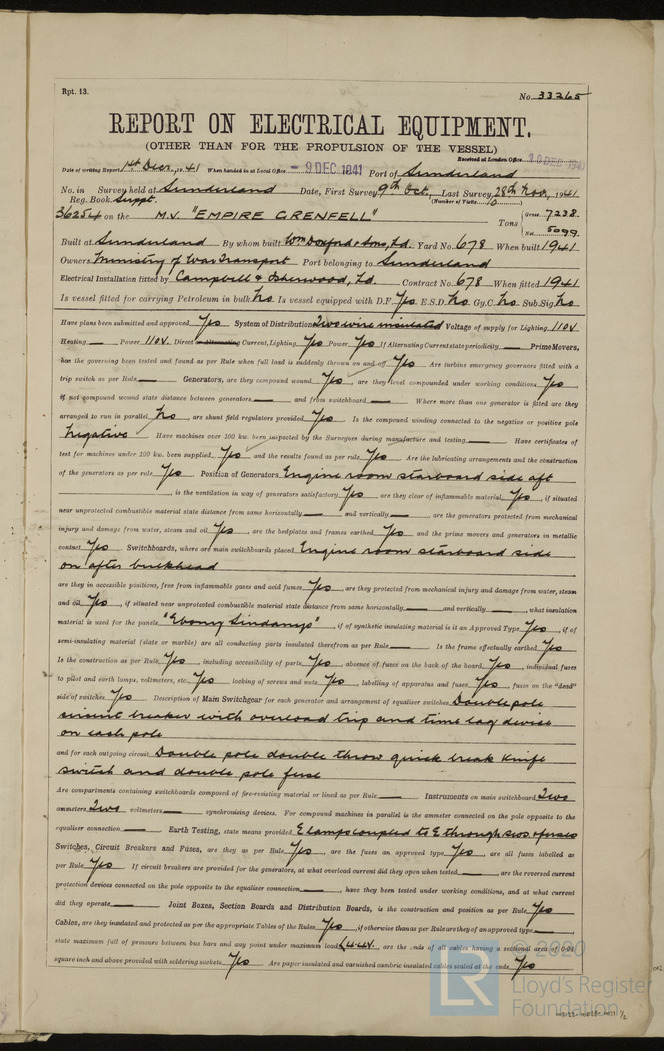 Rpt. 13.
No. 33265
REPORT ON ELECTRICAL EQUIPMENT.
(OTHER THAN FOR THE PROPULSION OF THE VESSEL)
Received at London Office 10 DEC 1941
Date of writing Report 1st Decr. 1941 When handed in at Local Office - 9 DEC 1941 Port of Sunderland
No. in Survey held at Sunderland Date, First Survey 9th Oct. Last Survey, 28th Nov. 1941
Reg. Book. Suppt. (Number of Visits 10)
36254 on the M.V. "EMPIRE GRENFELL" Tons {Gross 7238. Net 5099.
Built at Sunderland By whom built Wm Doxford & Sons, Ld. Yard No. 678 When built 1941
Owners Ministry of War Transport Port belonging to Sunderland
Electrical Installation fitted by Campbell & Isherwood, Ld. Contract No. 678 When fitted 1941
Is vessel fitted for carrying Petroleum in bulk No Is vessel equipped with D.F. Yes E.S.D. No Gy.C. No Sub.Sig. No
Have plans been submitted and approved Yes System of Distribution Two wire insulated Voltage of supply for Lighting 110V
Heating — Power 110V. Direct or Alternating Current, Lighting Yes Power Yes If Alternating Current state periodicity — Prime Movers,
has the governing been tested and found as per Rule when full load is suddenly thrown on and off Yes Are turbine emergency governors fitted with a
trip switch as per Rule — Generators, are they compound wound Yes, are they level compounded under working conditions Yes,
if not compound wound state distance between generators — and from switchboard — Where more than one generator is fitted are they
arranged to run in parallel No, are shunt field regulators provided Yes Is the compound winding connected to the negative or positive pole
Negative Have machines over 100 kw. been inspected by the Surveyors during manufacture and testing — Have certificates of
test for machines under 100 kw. been supplied Yes and the results found as per rule Yes Are the lubricating arrangements and the construction
of the generators as per rule Yes Position of Generators Engine room starboard side aft
, is the ventilation in way of generators satisfactory Yes, are they clear of inflammable material Yes, if situated
near unprotected combustible material state distance from same horizontally — and vertically —, are the generators protected from mechanical
injury and damage from water, steam and oil Yes, are the bedplates and frames earthed Yes and the prime movers and generators in metallic
contact Yes Switchboards, where are main switchboards placed Engine room starboard side
on after bulkhead
are they in accessible positions, free from inflammable gases and acid fumes Yes, are they protected from mechanical injury and damage from water, steam
and oil Yes, if situated near unprotected combustible material state distance from same horizontally — and vertically —, what insulation
material is used for the panels "Ebony Sindanyo", if of synthetic insulating material is it an Approved Type Yes, if of
semi-insulating material (slate or marble) are all conducting parts insulated therefrom as per Rule — Is the frame effectually earthed Yes
Is the construction as per Rule Yes, including accessibility of parts Yes, absence of fuses on the back of the board Yes, individual fuses
to pilot and earth lamps, voltmeters, etc. Yes locking of screws and nuts Yes, labelling of apparatus and fuses Yes, fuses on the "dead"
side of switches Yes Description of Main Switchgear for each generator and arrangement of equaliser switches Double pole
circuit breaker with overload trip and time lag device
on each pole
and for each outgoing circuit Double pole double throw quick break knife
switch and double pole fuse
Are compartments containing switchboards composed of fire-resisting material or lined as per Rule — Instruments on main switchboard Two
ammeters Two voltmeters — synchronising devices. For compound machines in parallel is the ammeter connected on the pole opposite to the
equaliser connection — Earth Testing, state means provided E lamps coupled to E through sws. & fuses
Switches, Circuit Breakers and Fuses, are they as per Rule Yes, are the fuses an approved type Yes, are all fuses labelled as
per Rule Yes If circuit breakers are provided for the generators, at what overload current did they open when tested —, are the reversed current
protection devices connected on the pole opposite to the equaliser connection —, have they been tested under working conditions, and at what current
did they operate — Joint Boxes, Section Boards and Distribution Boards, is the construction and position as per Rule Yes
Cables, are they insulated and protected as per the appropriate Tables of the Rules Yes, if otherwise than as per Rule are they of an approved type —,
state maximum fall of pressure between bus bars and any point under maximum load, are the ends of all cables having a sectional area of 0·01
square inch and above provided with soldering sockets Yes Are paper insulated and varnished cambric insulated cables sealed at the ends Yes
© 2020
LR
Lloyd's Register
Foundation
1/2